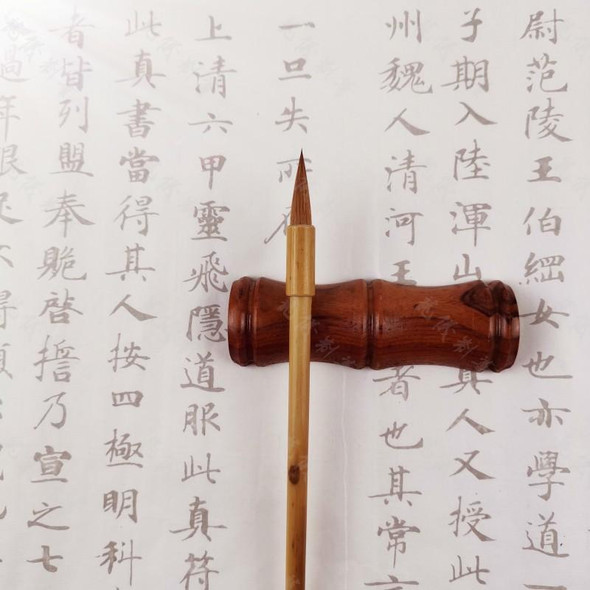 尉范陵王伯綱女也亦學道一
子期入陸渾山真人又授此
州魏人清河王者也其常
一旦失
上清六甲靈飛隱道服此真符
此真書當得其人按四極明科
者皆列盟奉啓乃宣之七
年限足不得